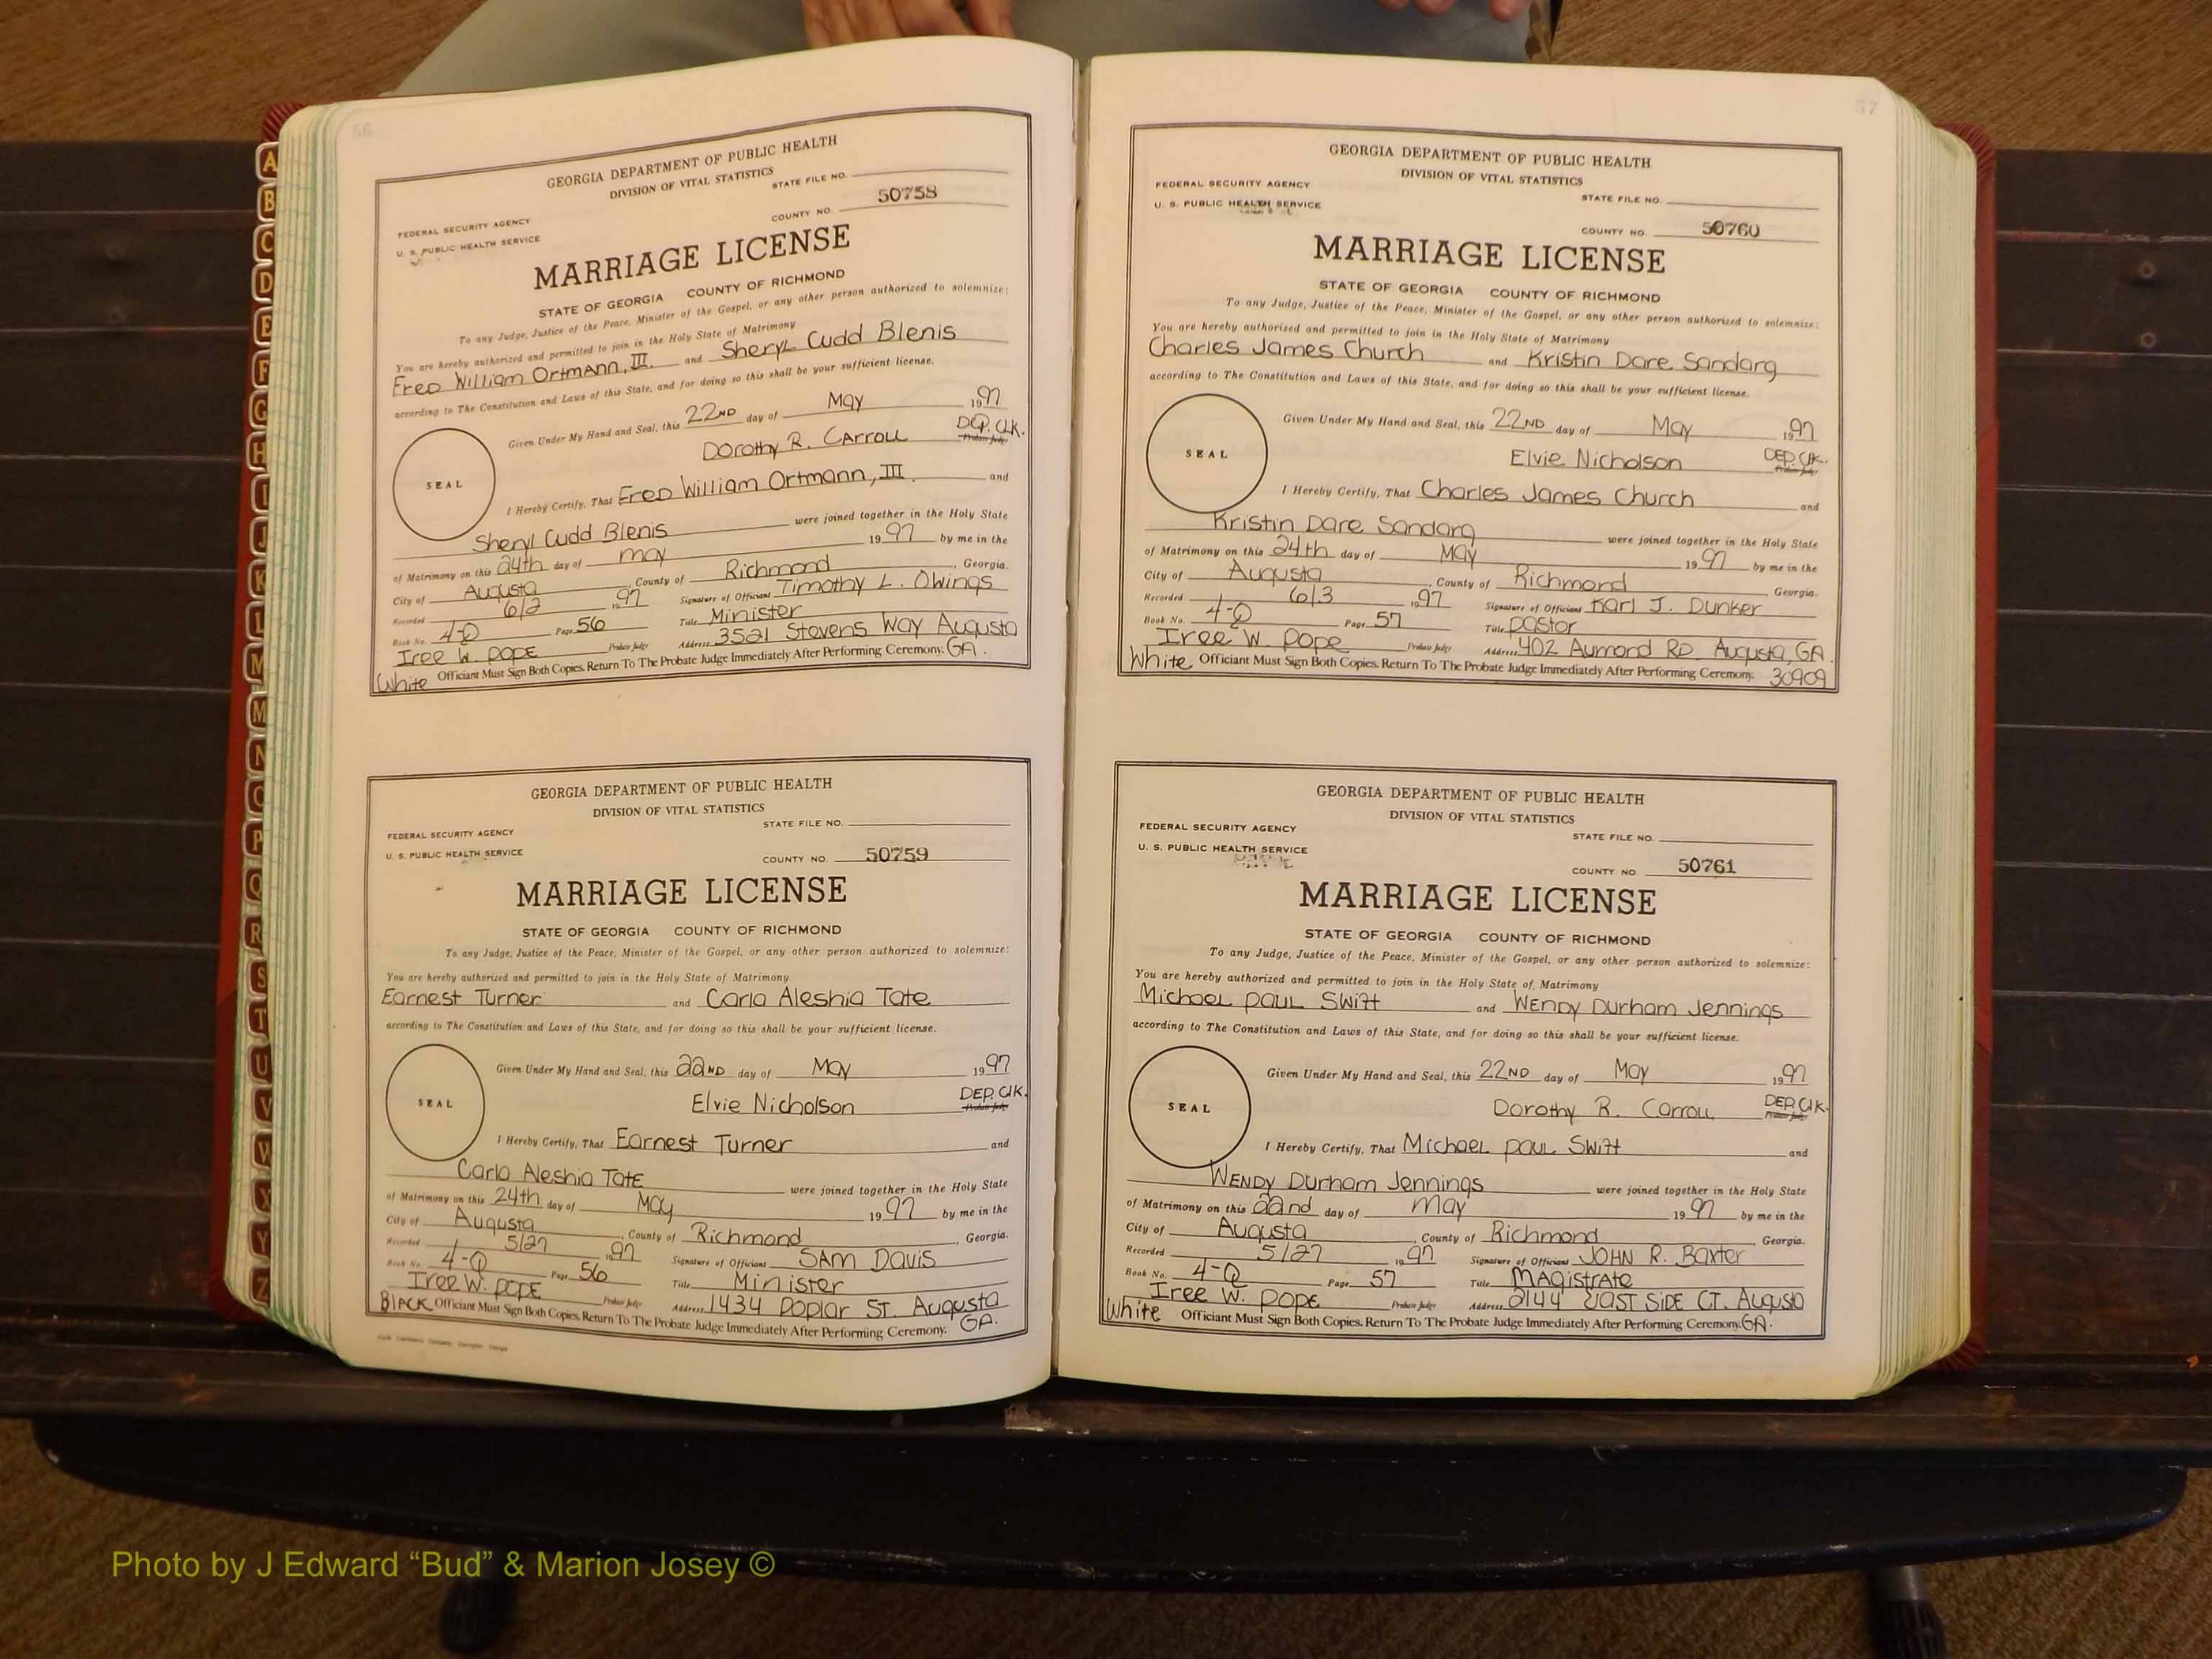 56
GEORGIA DEPARTMENT OF PUBLIC HEALTH
DIVISION OF VITAL STATISTICS
STATE FILE NO.
FEDERAL SECURITY AGENCY
U. S. PUBLIC HEALTH SERVICE
COUNTY NO. 50758
MARRIAGE LICENSE
STATE OF GEORGIA COUNTY OF RICHMOND
To any Judge, Justice of the Peace, Minister of the Gospel, or any other person authorized to solemnize:
You are hereby authorized and permitted to join in the Holy State of Matrimony
Fred William Ortmann, III. and Sheryl Cudd Blenis
according to The Constitution and Laws of this State, and for doing so this shall be your sufficient license.
Given Under My Hand and Seal, this 22ND day of May 1997
Dorothy R. Carroll DEP. CLK.
Probate Judge
SEAL
I Hereby Certify, That Fred William Ortmann, III. and
Sheryl Cudd Blenis were joined together in the Holy State
of Matrimony on this 24th day of may 1997 by me in the
City of Augusta, County of Richmond, Georgia.
Recorded 6/2 1997 Signature of Officiant Timothy L. Owings
Book No. 4-Q Page 56 Title Minister
Iree W. Pope Probate Judge Address 3521 Stevens Way Augusta
White Officiant Must Sign Both Copies. Return To The Probate Judge Immediately After Performing Ceremony. GA.
GEORGIA DEPARTMENT OF PUBLIC HEALTH
DIVISION OF VITAL STATISTICS
STATE FILE NO.
FEDERAL SECURITY AGENCY
U. S. PUBLIC HEALTH SERVICE
COUNTY NO. 50759
MARRIAGE LICENSE
STATE OF GEORGIA COUNTY OF RICHMOND
To any Judge, Justice of the Peace, Minister of the Gospel, or any other person authorized to solemnize:
You are hereby authorized and permitted to join in the Holy State of Matrimony
Earnest Turner and Carla Aleshia Tate
according to The Constitution and Laws of this State, and for doing so this shall be your sufficient license.
Given Under My Hand and Seal, this 22ND day of May 1997
Elvie Nicholson DEP. Clk.
Probate Judge
SEAL
I Hereby Certify, That Earnest Turner and
Carla Aleshia Tate were joined together in the Holy State
of Matrimony on this 24th day of May 1997 by me in the
City of Augusta, County of Richmond, Georgia.
Recorded 5/27 1997 Signature of Officiant Sam Davis
Book No. 4-Q Page 56 Title Minister
Iree W. Pope Probate Judge Address 1434 Poplar St. Augusta
BLACK Officiant Must Sign Both Copies. Return To The Probate Judge Immediately After Performing Ceremony. GA.
57
GEORGIA DEPARTMENT OF PUBLIC HEALTH
DIVISION OF VITAL STATISTICS
FEDERAL SECURITY AGENCY
U. S. PUBLIC HEALTH SERVICE
STATE FILE NO.
COUNTY NO. 50760
MARRIAGE LICENSE
STATE OF GEORGIA COUNTY OF RICHMOND
To any Judge, Justice of the Peace, Minister of the Gospel, or any other person authorized to solemnize:
You are hereby authorized and permitted to join in the Holy State of Matrimony
Charles James Church and Kristin Dare Sandarg
according to The Constitution and Laws of this State, and for doing so this shall be your sufficient license.
Given Under My Hand and Seal, this 22ND day of May 1997
Elvie Nicholson DEP. Clk.
Probate Judge
SEAL
I Hereby Certify, That Charles James Church and
Kristin Dare Sandarg were joined together in the Holy State
of Matrimony on this 24th day of May 1997 by me in the
City of Augusta, County of Richmond, Georgia.
Recorded 6/3 1997 Signature of Officiant Karl J. Dunker
Book No. 4-Q Page 57 Title Pastor
Iree W. Pope Probate Judge Address 402 Aumond RD. Augusta, GA.
White Officiant Must Sign Both Copies. Return To The Probate Judge Immediately After Performing Ceremony. 30909
GEORGIA DEPARTMENT OF PUBLIC HEALTH
DIVISION OF VITAL STATISTICS
FEDERAL SECURITY AGENCY
U. S. PUBLIC HEALTH SERVICE
STATE FILE NO.
COUNTY NO. 50761
MARRIAGE LICENSE
STATE OF GEORGIA COUNTY OF RICHMOND
To any Judge, Justice of the Peace, Minister of the Gospel, or any other person authorized to solemnize:
You are hereby authorized and permitted to join in the Holy State of Matrimony
Michael Paul Swift and Wendy Durham Jennings
according to The Constitution and Laws of this State, and for doing so this shall be your sufficient license.
Given Under My Hand and Seal, this 22ND day of May 1997
Dorothy R. Carroll DEP. Clk.
Probate Judge
SEAL
I Hereby Certify, That Michael Paul Swift and
Wendy Durham Jennings were joined together in the Holy State
of Matrimony on this 22nd day of may 1997 by me in the
City of Augusta, County of Richmond, Georgia.
Recorded 5/27 1997 Signature of Officiant John R. Baxter
Book No. 4-Q Page 57 Title Magistrate
Iree W. Pope Probate Judge Address 2144 East Side CT. Augusta
White Officiant Must Sign Both Copies. Return To The Probate Judge Immediately After Performing Ceremony. GA.
A
B
C
D
E
F
G
H
I
J
K
L
M
M
N
O
P
Q
R
S
T
U
V
W
X
Y
Z
Photo by J Edward “Bud” & Marion Josey ©